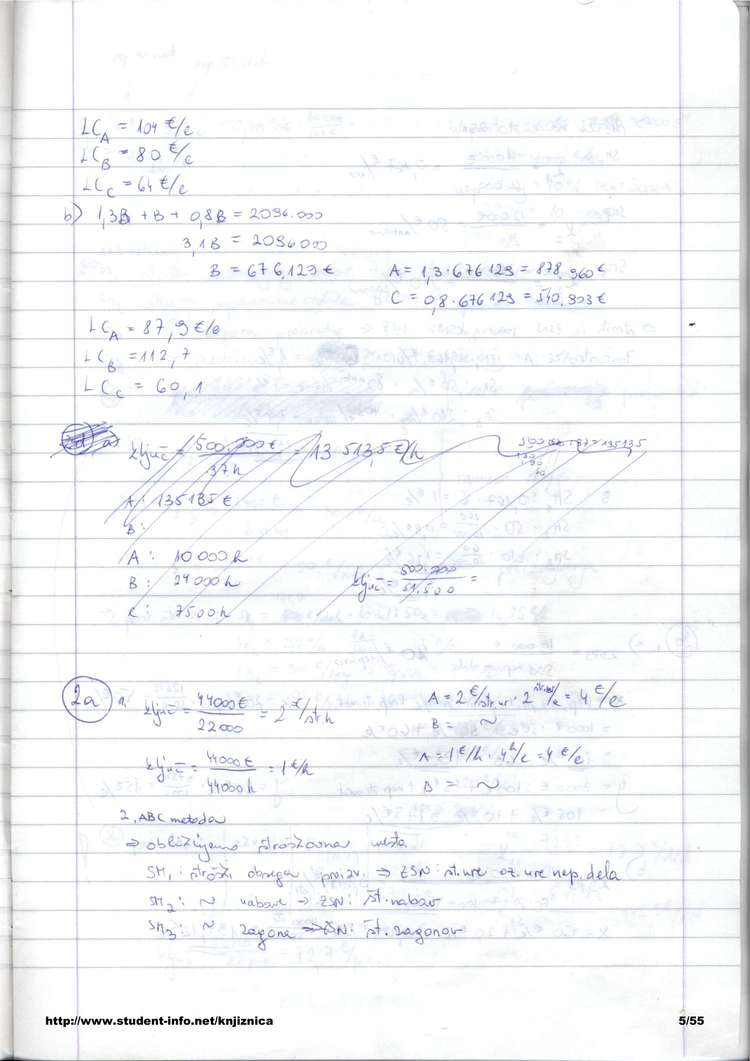 LC_A = 104 €/e
LC_B = 80 €/e
LC_C = 64 €/e
b) 1,3B + B + 0,8B = 2096.000
3,1B = 2096000
B = 676.129 € A = 1,3·676129 = 878.960 €
C = 0,8·676129 = 540.903 €
LC_A = 87,9 €/e
LC_B = 112,7
LC_C = 60,1
a) ključ = 500.000€ / 37h = 13 513,5 €/h
A: 135135 €
B:
A: 10 000 h
B: 24 000 h
C: 7500 h
ključ = 500.700 / 51.500 =
2a 1. ključ = 44000€ / 22000 = 2 €/str.h A = 2 €/str.ur · 2 /e = 4 €/e
B = ~
ključ = 44000€ / 44000h = 1 €/h A = 1 €/h · 4 h/e = 4 €/e
B = ~
2. ABC metoda
⇒ oblikujemo stroškovna mesta
SM₁: stroški obsega proizv. ⇒ ŽSN: št. ure oz. ure nep. dela
SM₂: ~ nabave ⇒ ŽSN: št. nabav
SM₃: ~ zagona ⇒ ŠN: št. zagonov
http://www.student-info.net/knjiznica 5/55